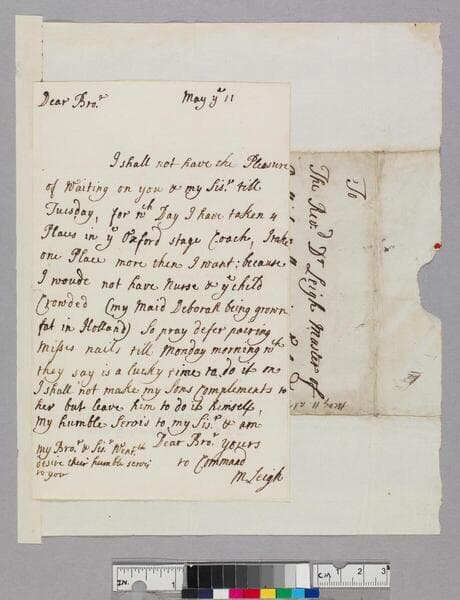 Dear Bro.r May ye 11
I shall not have the Pleasure
of Waiting on you & my Sis.r till
Tuesday, for wch Day I have taken 4
Places in ye Oxford stage Coach, I take
one Place more then I want; because
I woude not have Nurse & ye child
Crowded (my Maid Deborah being grown
fat in Holland) So pray defer pairing
Misses nails till Monday morning wch
they say is a lucky time to do it on
I shall not make my Sons Complements to
her but leave him to do it himself,
my humble Servis to my Sis.r & am
Dear Bro.r yours
to Command
M Leigh
my Bro.r & Sis.r Went.th
desire their humble servis
to you
To
The Revd Dr Leigh Master of
May 11
IN. 1
CM 1 2 3